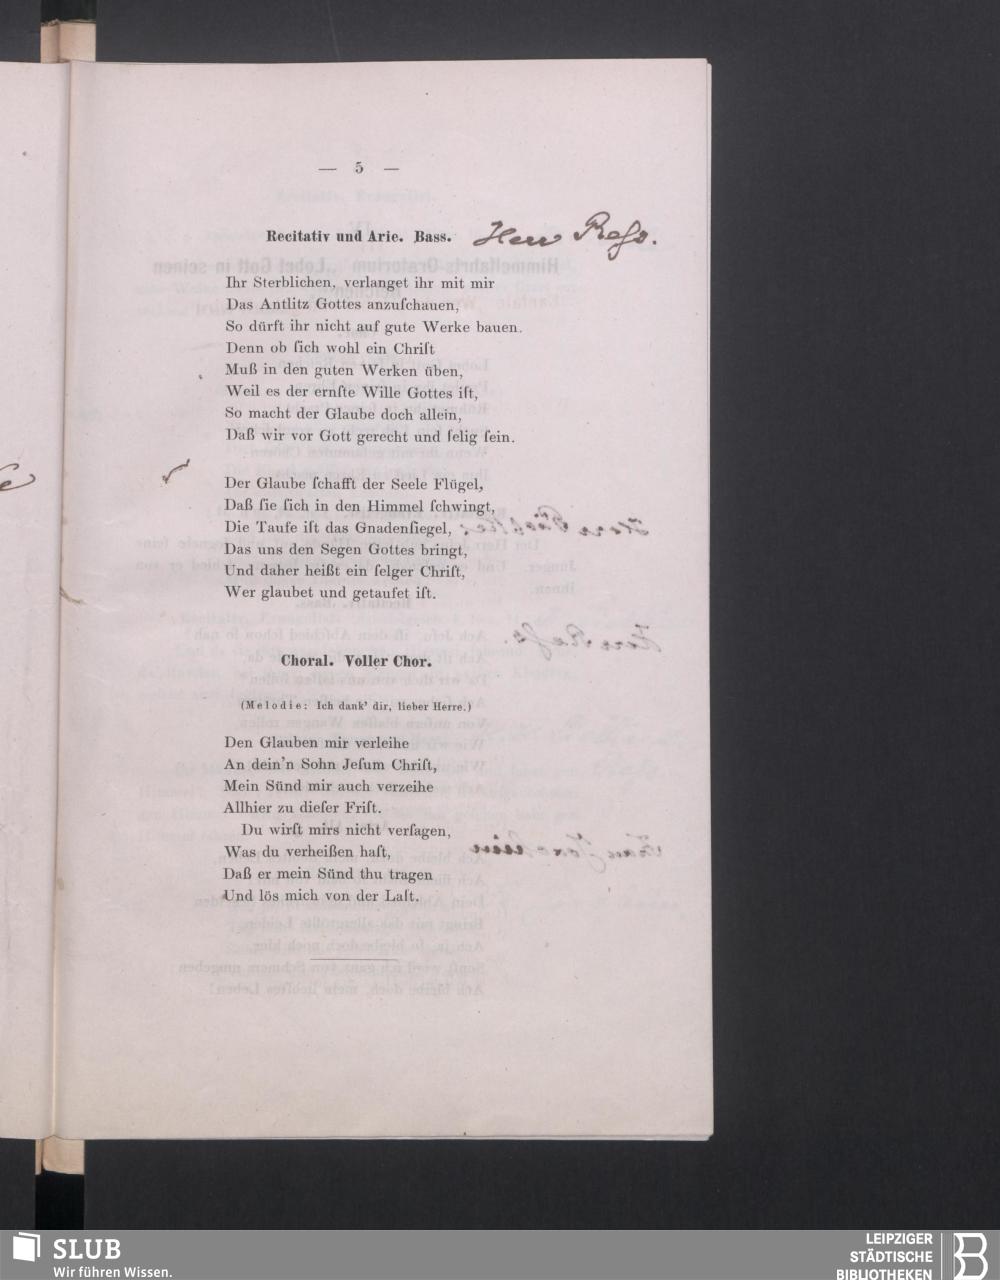 — 5 —
Recitativ und Arie. Bass. Herr
Ihr Sterblichen, verlanget ihr mit mir
Das Antlitz Gottes anzuſchauen,
So dürft ihr nicht auf gute Werke bauen.
Denn ob ſich wohl ein Chriſt
Muß in den guten Werken üben,
Weil es der ernſte Wille Gottes iſt,
So macht der Glaube doch allein,
Daß wir vor Gott gerecht und ſelig ſein.
Der Glaube ſchafft der Seele Flügel,
Daß ſie ſich in den Himmel ſchwingt,
Die Taufe iſt das Gnadenſiegel,
Das uns den Segen Gottes bringt,
Und daher heißt ein ſelger Chriſt,
Wer glaubet und getaufet iſt.
Choral. Voller Chor.
(Melodie: Ich dank' dir, lieber Herre.)
Den Glauben mir verleihe
An dein'n Sohn Jeſum Chriſt,
Mein Sünd mir auch verzeihe
Allhier zu dieſer Friſt.
Du wirſt mirs nicht verſagen,
Was du verheißen haſt,
Daß er mein Sünd thu tragen
Und lös mich von der Laſt.
SLUB
Wir führen Wissen.
LEIPZIGER
STÄDTISCHE
BIBLIOTHEKEN